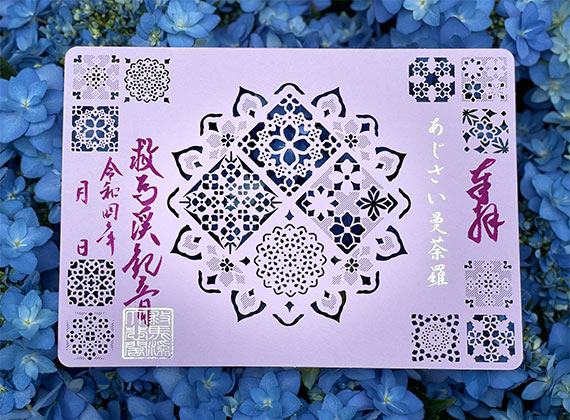 奉拝
あじさい曼荼羅
救馬溪観音
令和四年
月 日